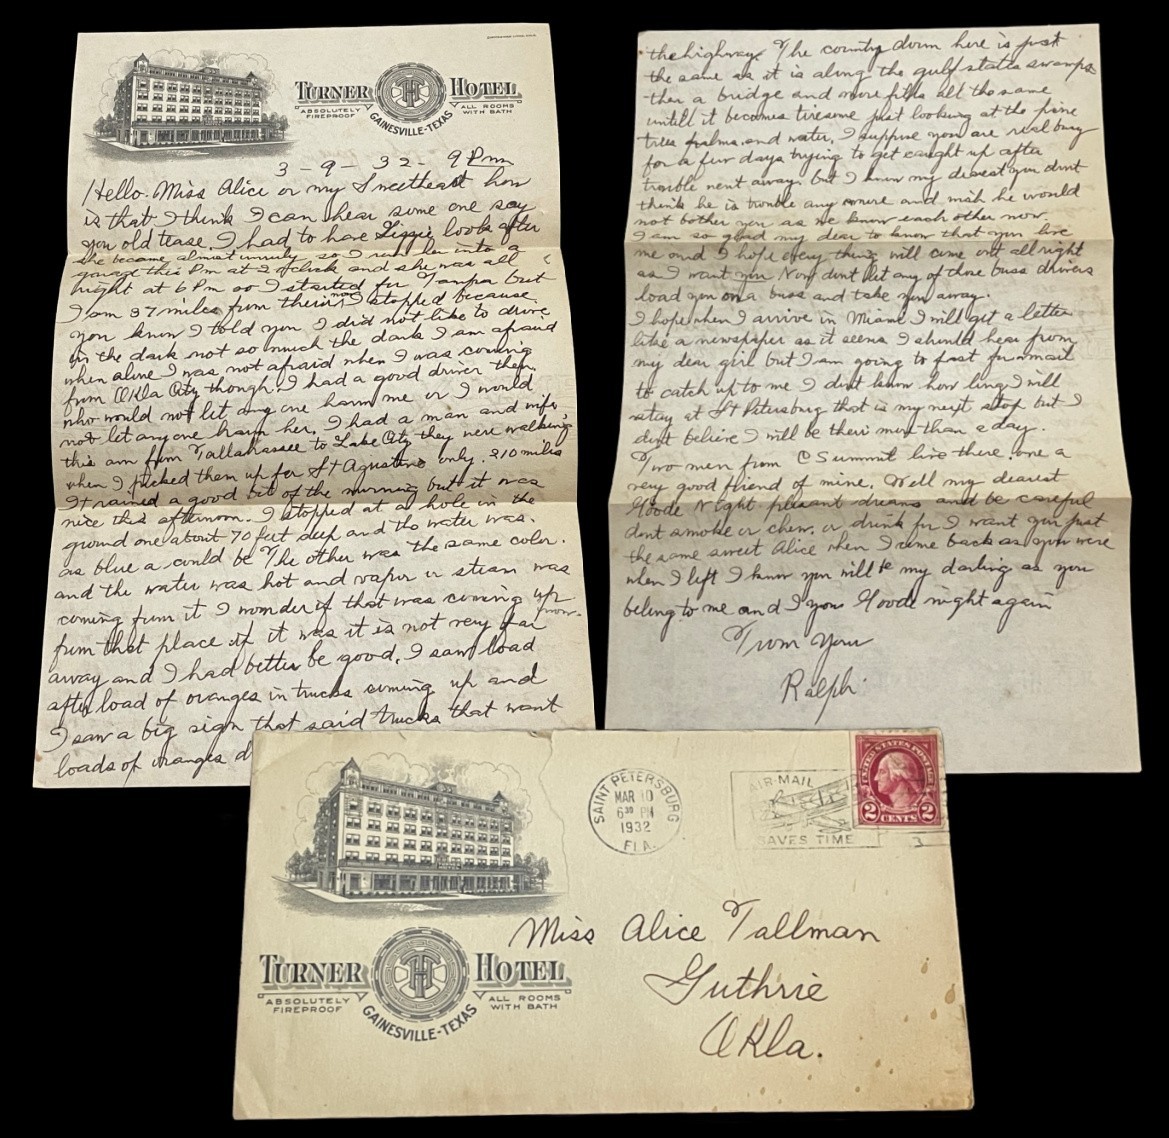 TURNER HOTEL
ABSOLUTELY FIREPROOF
ALL ROOMS WITH BATH
GAINESVILLE-TEXAS
3-9-32- 9 Pm
Hello. Miss Alice or my Sweetheart how
is that I think I can hear some one say
you old tease. I had to have Lizzie looks after
she became almost unruly so I run her into a
garage this Pm at 2 oclock and she was all
right at 6 Pm so I started for Tampa but
I am 37 miles from their now I stopped because
you know I told you I did not like to drive
in the dark not so much the dark I am afraid
when alone I was not afraid when I was coming
from Okla City though. I had a good driver then
who would not let any one harm me or I would
not let anyone harm her. I had a man and wife,
this am from Tallahassee to Lake City they were walking
when I picked them up for St Agustine only. 210 miles
It rained a good bit of the morning but it was
nice this afternoon. I stopped at a hole in the
ground one about 70 feet deep and the water was.
as blue a could be The other was the same color.
and the water was hot and vapor or steam was
coming from it I wonder if that was coming up
from that place if it was it is not very far from.
away and I had better be good. I saw load
after load of oranges in trucks coming up and
I saw a big sign that said trucks that want
loads of oranges d
the highway. The country down here is just
the same as it is along the gulf states swamps
then a bridge and more all the same
untill it becomes tiresome just looking at the pine
trees palms. and water. I suppose you are real busy
for a few days trying to get caught up after
trouble went away. but I know my dearest you dont
think he is trouble any more and wish he would
not bother you as we know each other now.
I am so glad my dear to know that you love
me and I hope every thing will come out all right
as I want you Now dont let any of those buss drivers
load you on a buss and take you away.
I hope when I arrive in Miami I will get a letter
like a newspaper as it seems I should hear from
my dear girl but I am going to fast for mail
to catch up to me I dont know how long I will
stay at St Petersburg that is my next stop but I
dont believe I will be their more than a day.
Two men from Summit live there one a
very good friend of mine. Well my dearest
Goode Night pleasant dreams and be careful
dont smoke or chew. or drink for I want you just
the same sweet Alice when I come back as you were
when I left I know you will be my darling as you
belong to me and I you Goode night again
From Your
Ralph.
TURNER HOTEL
ABSOLUTELY FIREPROOF
ALL ROOMS WITH BATH
GAINESVILLE-TEXAS
SAINT PETERSBURG
MAR 10
6 30 PM
1932
FLA.
AIR-MAIL
SAVES TIME
UNITED STATES POSTAGE
2 CENTS 2
Miss Alice Tallman
Guthrie
Okla.